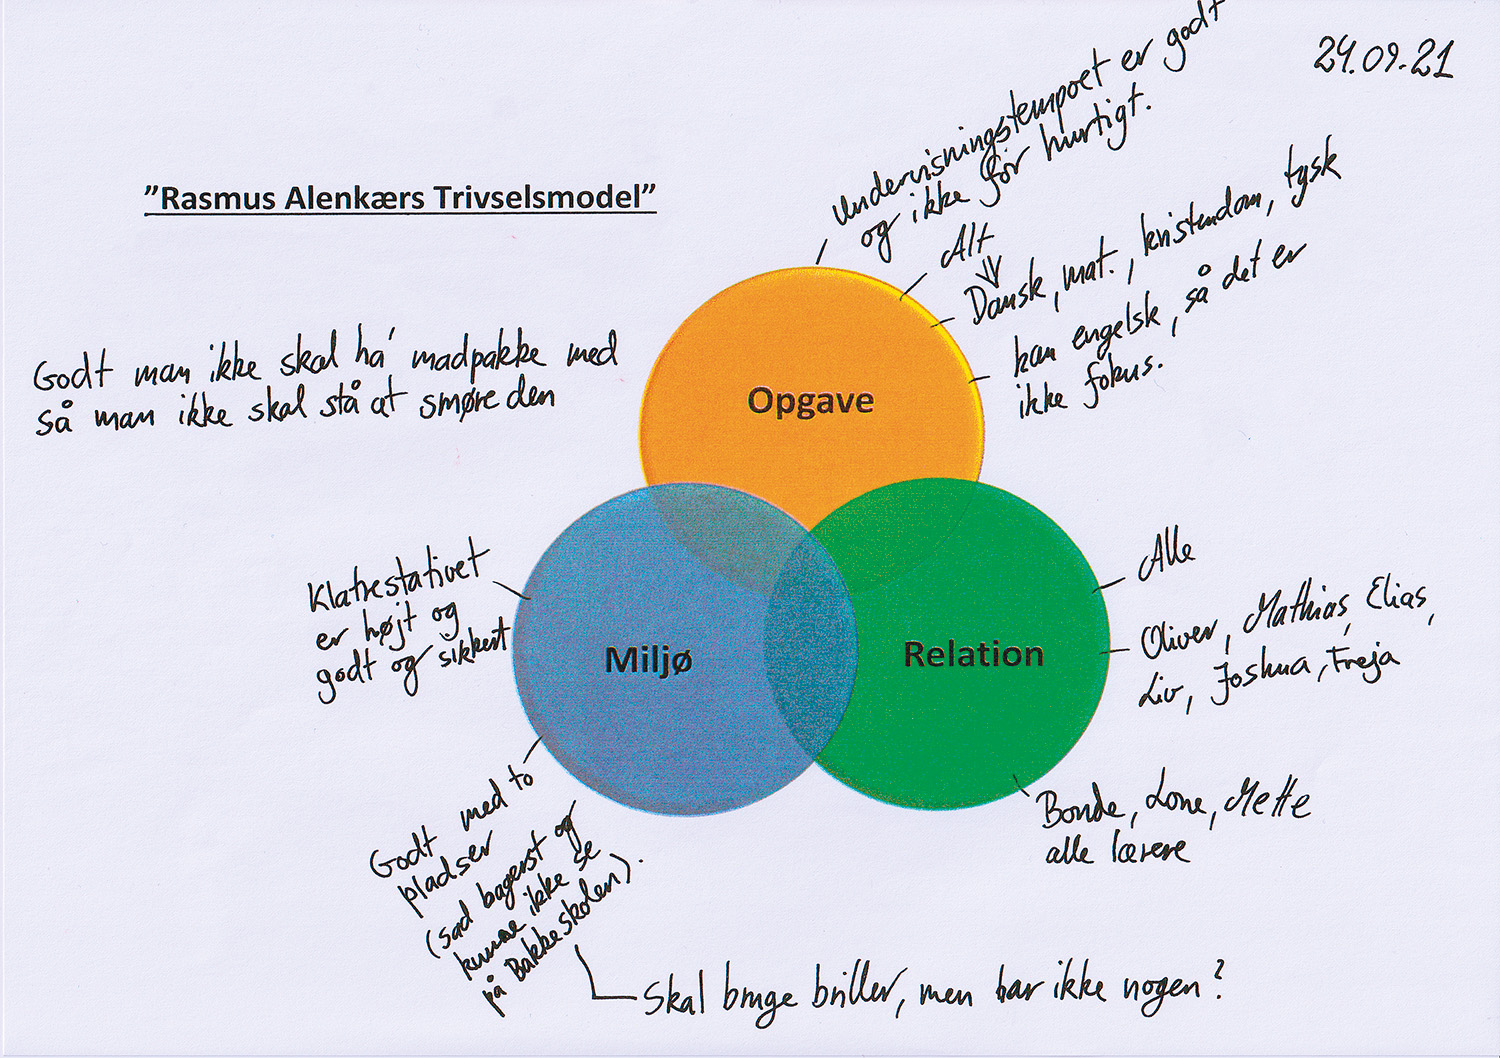 24.09.21
"Rasmus Alenkærs Trivselsmodel"
Undervisningstempoet er godt
og ikke for hurtigt.
Alt
Dansk, mat., kristendom, tysk
kan engelsk, så det er
ikke fokus.
Godt man ikke skal ha' madpakke med
så man ikke skal stå at smøre den
Opgave
Klatrestativet
er højt og
godt og sikkert
Miljø
Relation
Alle
Oliver, Mathias, Elias,
Liv, Joshua, Freja
Bonde, Lone, Mette
alle lærere
Godt med to
pladser
(sad bagerst og
kunne ikke se
på Bakkeskolen).
Skal bruge briller, men har ikke nogen?